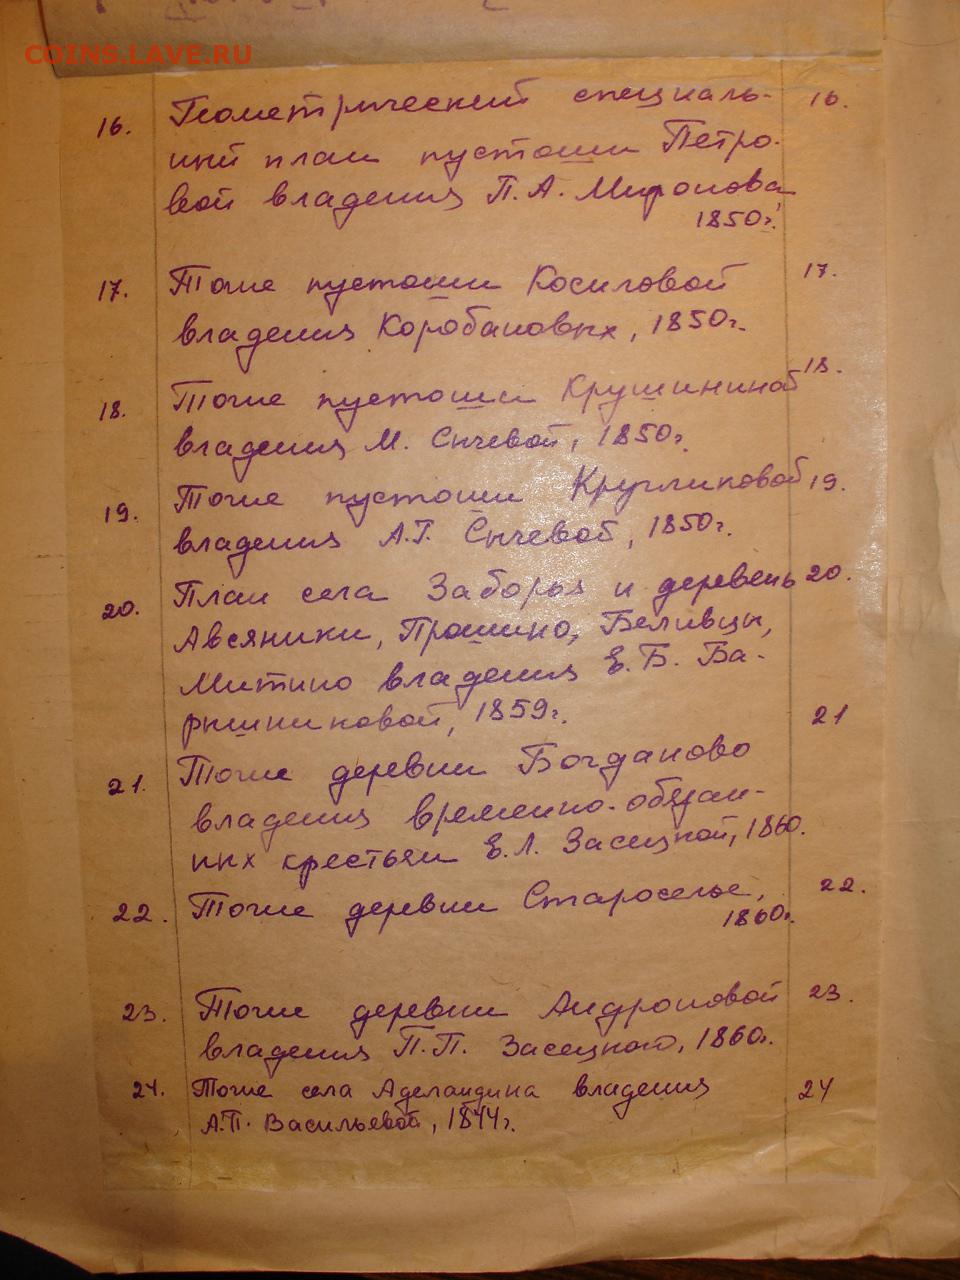 COINS.LAVE.RU
16. Геометрический специаль- 16.
ный план пустоши Петро-
вой владения П.А. Миронова,
1850г.
17. Тоже пустоши Косиловой 17.
владения Коробановых, 1850г.
18. Тоже пустоши Крушининой 18.
владения М. Сычевой, 1850г.
19. Тоже пустоши Кругликовой 19.
владения А.Г. Сычевой, 1850г.
20. План села Заборья и деревень 20.
Авсяники, Прошино, Беливцы,
Митино владения Е.Б. Ба-
рышниковой, 1859г.
21. Тоже деревни Богданово 21
владения временно-обязан-
ных крестьян Е.Л. Засецкой, 1860.
22. Тоже деревни Староселье, 22.
1860г.
23. Тоже деревни Андроновой 23.
владения П.П. Засецкого, 1860г.
24. Тоже села Аделаидина владения 24
А.П. Васильевой, 1844г.